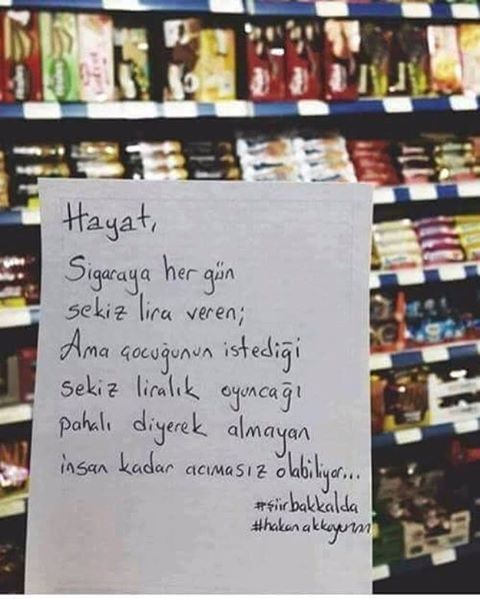 Hayat,
Sigaraya her gün
sekiz lira veren;
Ama çocuğunun istediği
sekiz liralık oyuncağı
pahalı diyerek almayan
insan kadar acımasız olabiliyor...
#şiirbakkalda